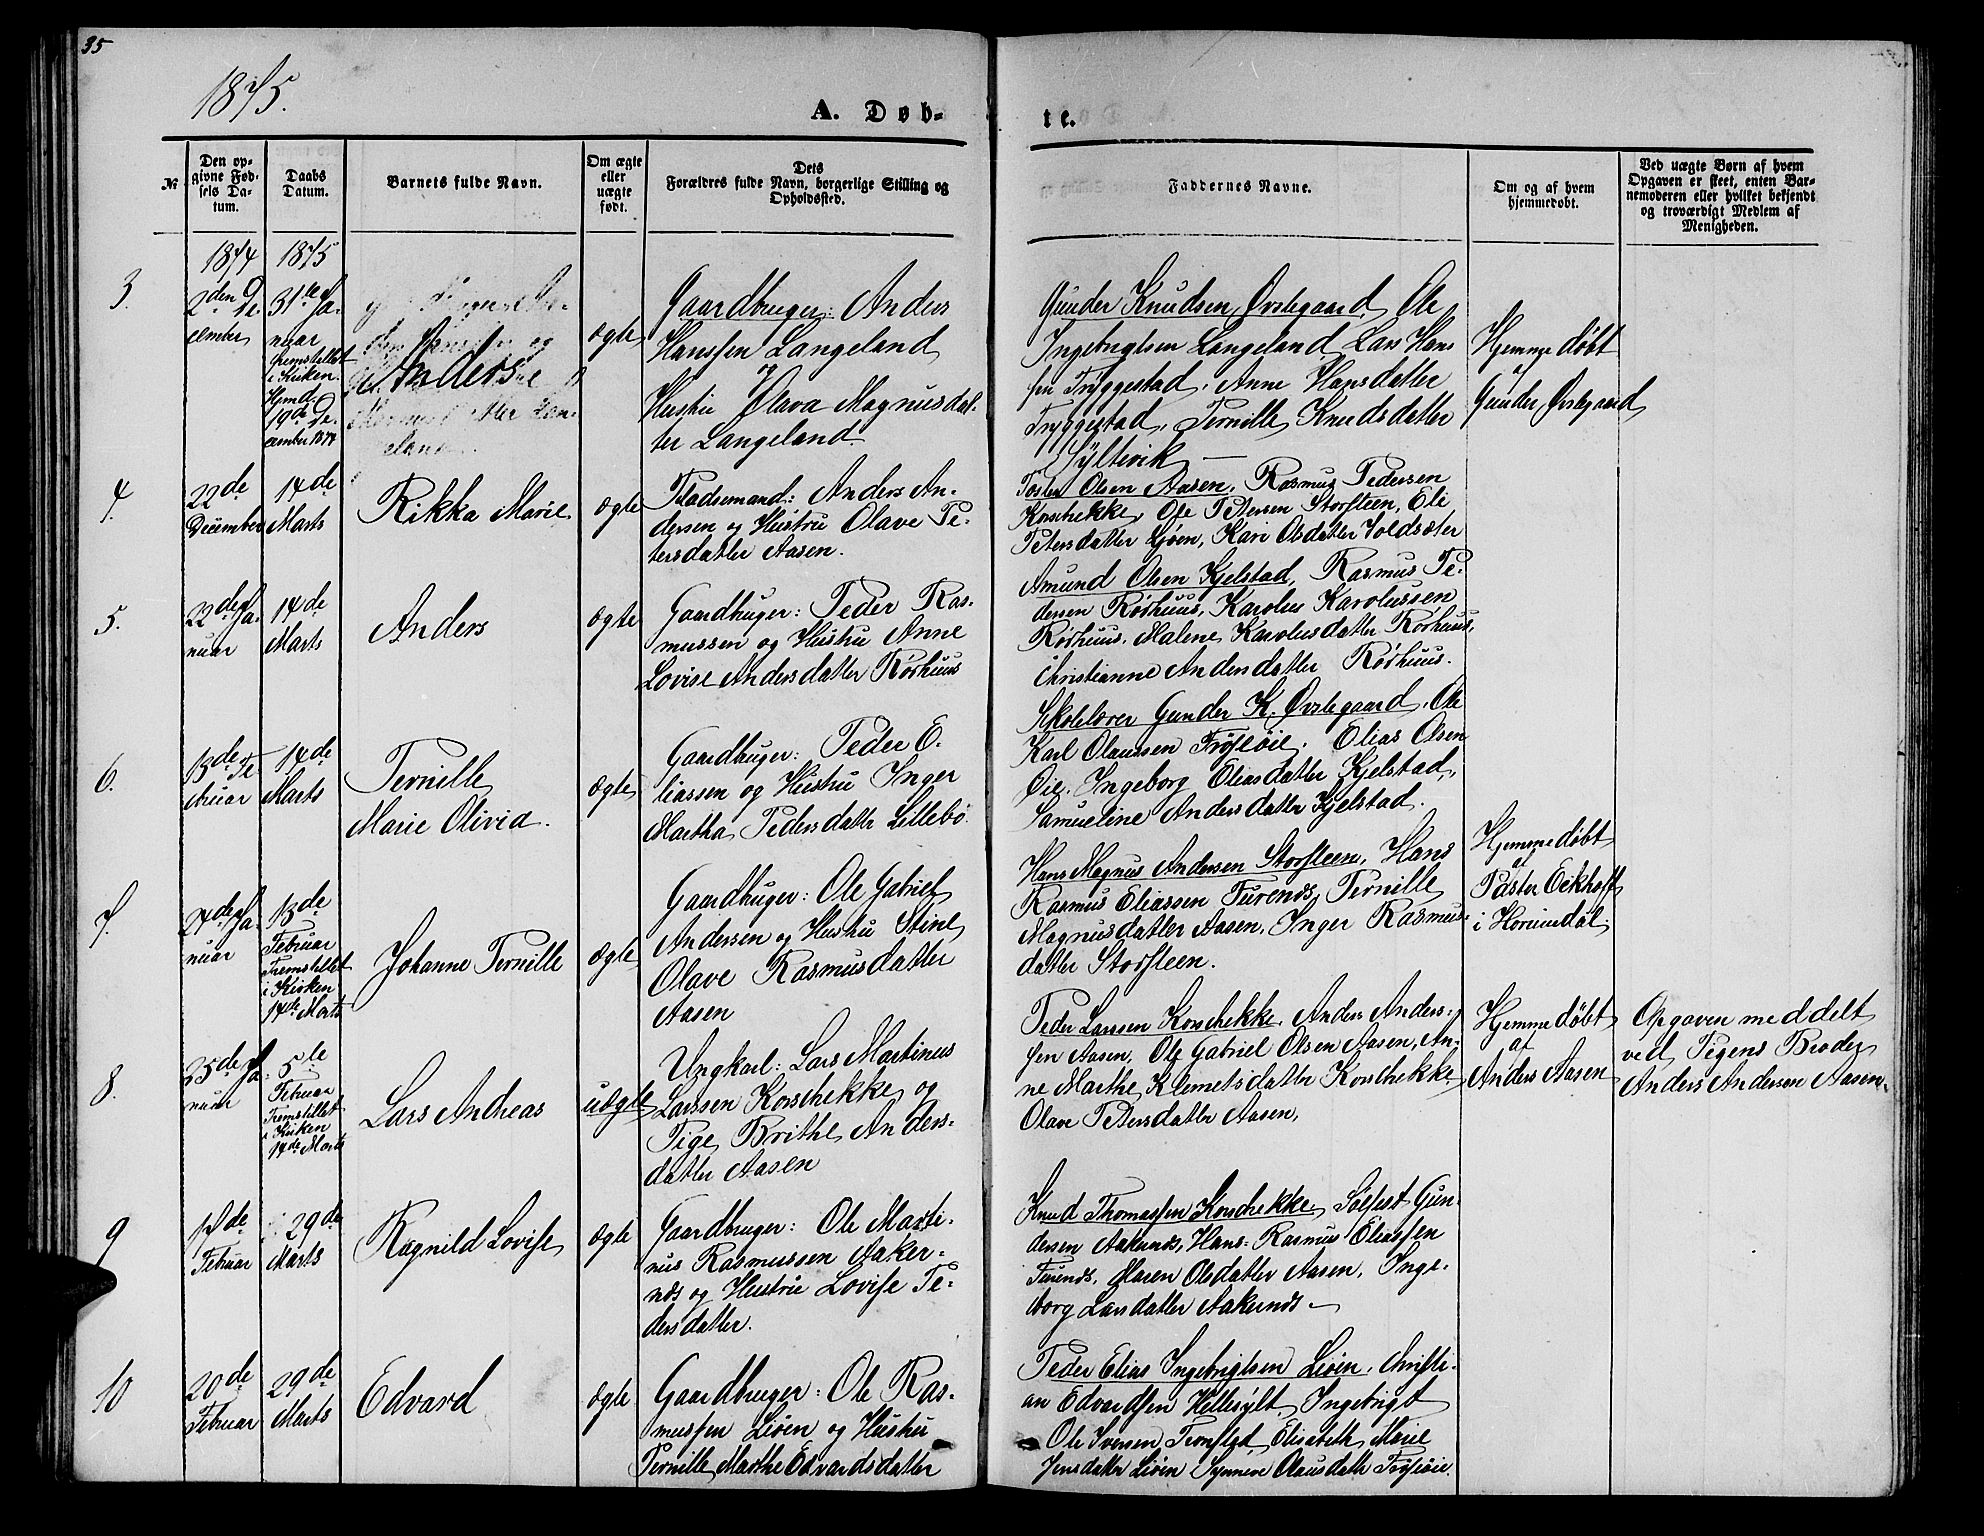 35
1875.
A. Døb-
te.
№
Den op-
givne Fød-
sels Da-
tum.
Daabs
Datum.
Barnets fulde Navn.
Om ægte
eller
uægte
født.
Dets
Forældres fulde Navn, borgerlige Stilling og
Opholdssted.
Faddernes Navne.
Om og af hvem
hjemmedøbt.
Ved uægte Børn af hvem
Opgaven er skeet, enten Bar-
nemoderen eller hvilket bekjendt
og troværdigt Medlem af
Menigheden.
1874
1875
3.
2den De-
cember
31te Ja-
nuar
fremstillet
i Kirken.
Hjmd.
19de De-
cember 1874
Anders
ægte
Gaardbruger: Anders
Hanssen Langeland
og
Hustru Olava Magnusdat-
ter Langeland.
Gunder Knudsen Øvstegaard, Ole
Ingebrigtsen Langeland, Lars Hans
sen Tryggestad, Anne Hansdatter
Tryggestad, Pernille Knudsdatter
Syltevik
Hjemme døbt
af
Gunder Øvstegaard
4.
22de
December
14de
Marts
Rikka Marie
ægte
Pladsemand: Anders An-
dersen og Hustru Olave Pe-
tersdatter Aasen.
Torsten Olsen Aasen, Rasmus Pedersen
Korsbrekke, Ole Petersen Storsteen, Eli
Petersdatter Ljøen, Kari Olsdatter Voldsæter
5.
22de Ja-
nuar
14de
Marts
Anders
ægte
Gaardbruger: Peder Ras-
mussen og Hustru Anne
Lovise Andersdatter Rørhuus
Amund Olsen Kjelstad, Rasmus Pe-
dersen Rørhuus, Karolus Karolussen
Rørhuus, Malene Karolusdatter Rørhuus,
Christianne Andersdatter Rørhuus.
6.
13de Fe-
bruar
14de
Marts
Pernille
Marie Olivia.
ægte
Gaardbruger: Peder E-
liassen og Hustru Inger
Martha Pedersdatter Lillebø
Skolelærer Gunder K. Øvstegaard, Ole
Karl Olaussen Frøisøie. Elias Olsen
Øie, Ingeborg Eliasdatter Kjelstad,
Samueline Andersdatter Kjelstad.
7.
24de Ja-
nuar
13de
Februar
Fremstillet
i Kirken
14de Marts
Johanne Pernille
ægte
Gaardbruger: Ole Gabriel
Andersen og Hustru Stine
Olave Rasmusdatter
Aasen
Hans Magnus Andersen Storsteen, Hans
Rasmus Eliassen Furenes, Pernille
Magnusdatter Aasen, Inger Rasmus-
datter Storsteen.
Hjemme døbt
af
Pastor Eckhoff
i Horninndal.
8.
25de Ja-
nuar
5te
Februar
Fremstillet
i Kirken
14de Marts
Lars Andreas
uægte
Ungkarl: Lars Martinus
Larssen Korsbrekke og
Pige Brithe Anders-
datter Aasen
Peder Larssen Korsbrekke, Anders Anders-
sen Aasen, Ole Gabriel Olsen Aasen, An-
ne Marthe Klemetsdatter Korsbrekke,
Olave Petersdatter Aasen,
Hjemme døbt
af
Anders Aasen
Opgaven meddelt
ved Pigens Broder
Anders Andersen Aasen.
9
17de
Februar
29de
Marts
Ragnild Lovise
ægte
Gaardbruger: Ole Marti-
nus Rasmussen Aaker-
næs og Hustru Lovise Pe-
dersdatter.
Knud Thomassen Korsbrekke, Sølfest Gun-
dersen Aakernæs, Hans Rasmus Eliassen
Furenes, Maren Olsdatter Aasen, Inge-
borg Larsdatter Aakernæs
10
20de
Februar
29de
Marts
Edvard
ægte
Gaardbruger: Ole Ras-
mussen Liøen og Hustru
Pernille Marthe Edvardsdatter
Peder Elias Ingebrigtsen Liøen, Christi-
an Edvardsen Hellesylt, Ingebrigt
Ole Iversen Tronstad, Elisabeth Marie
Jensdatter Liøen, Synneve Olausdatter Frøisøie.